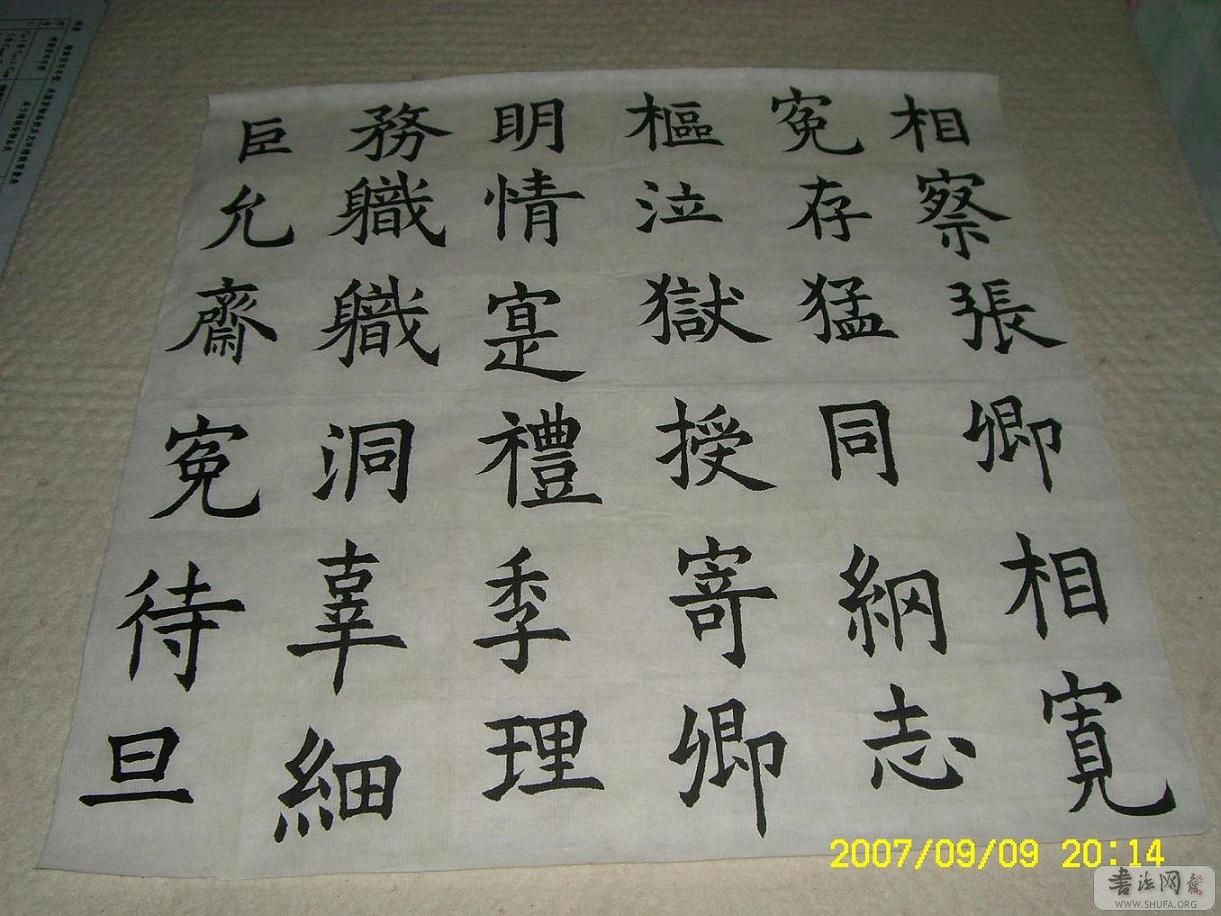 相察張卿相寬
寃存猛同綱志
樞泣獄授寄卿
明情寔禮季理
務職職洞辜細
臣允齋寃待旦
2007/09/09 20:14
書法网
WWW.SHUFA.ORG